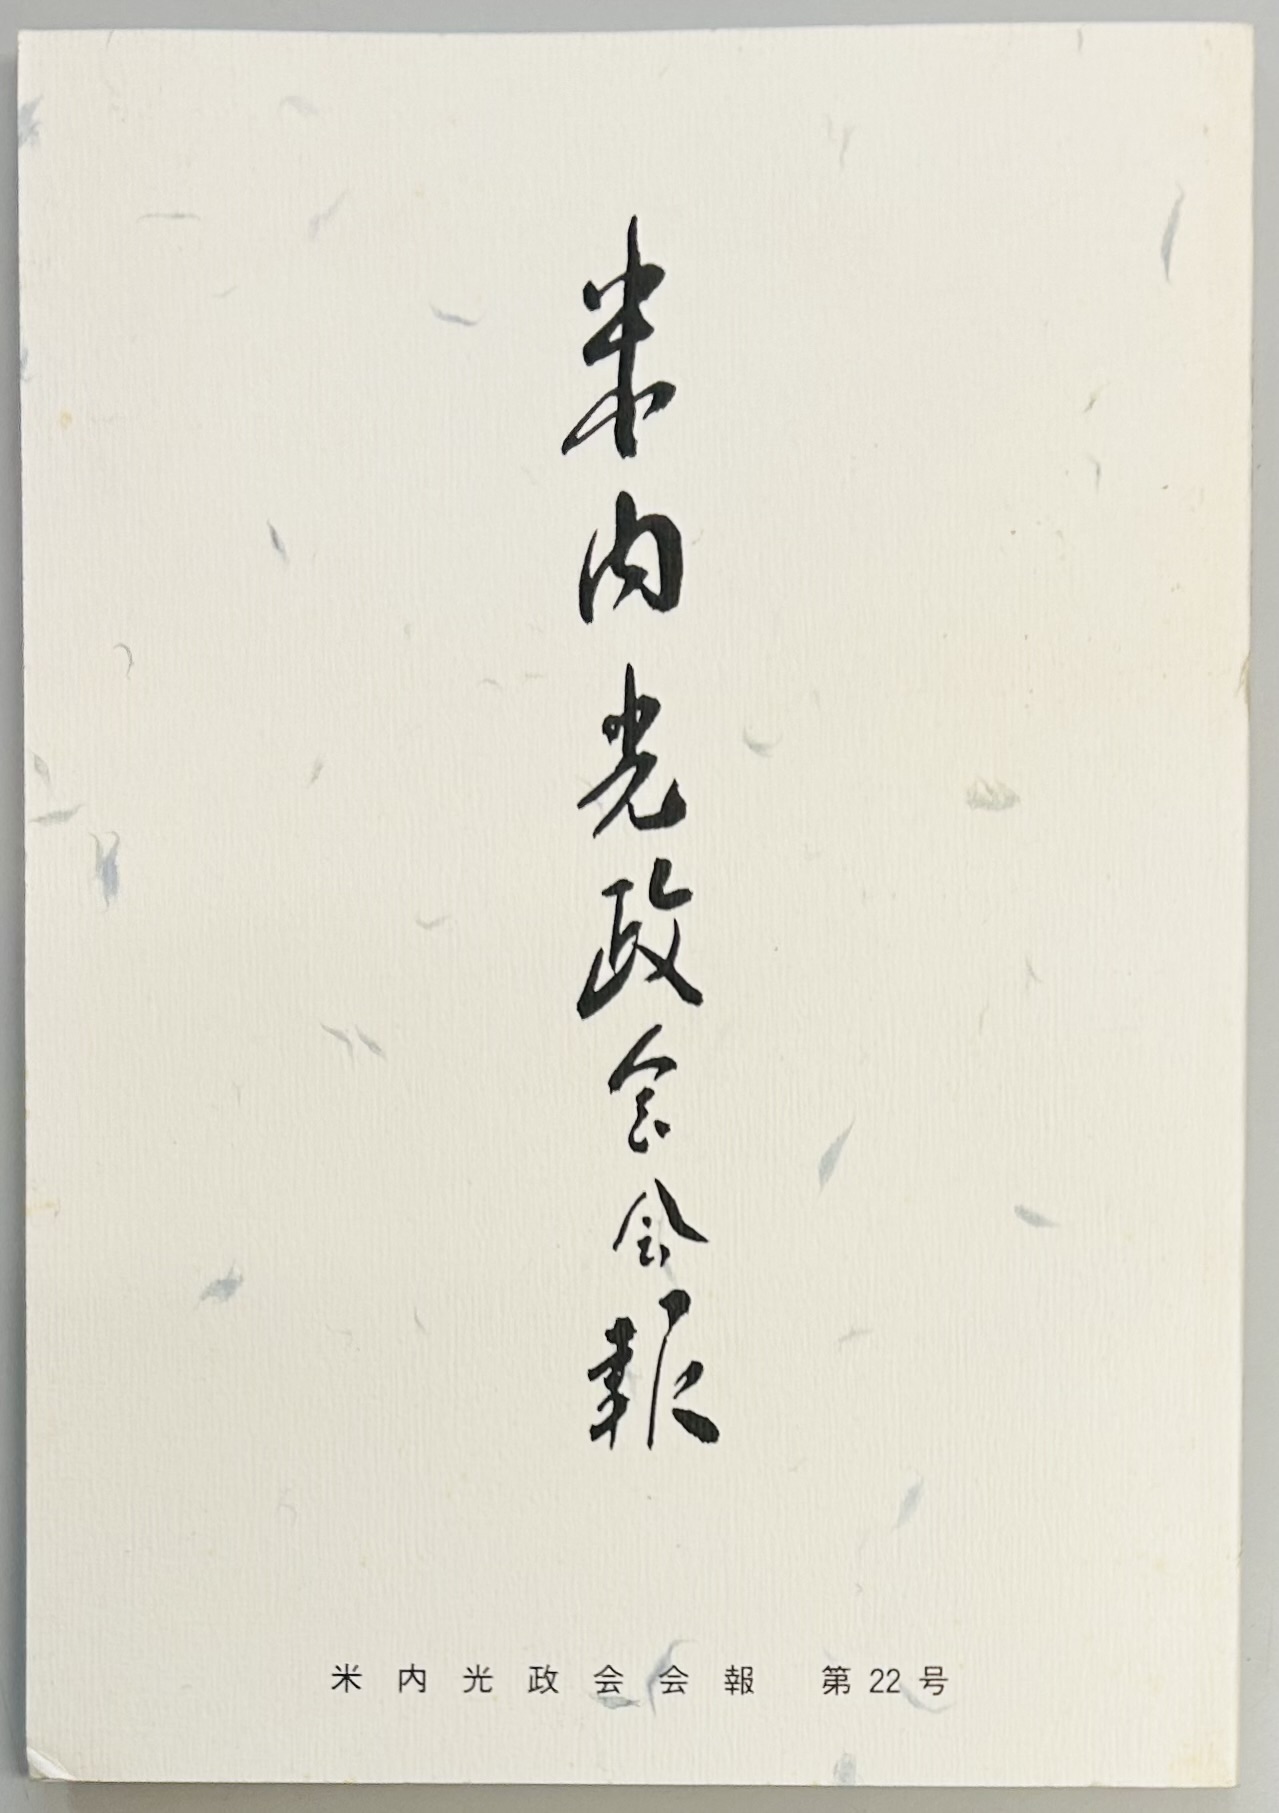 米内光政会会報
米内光政会会報 第22号